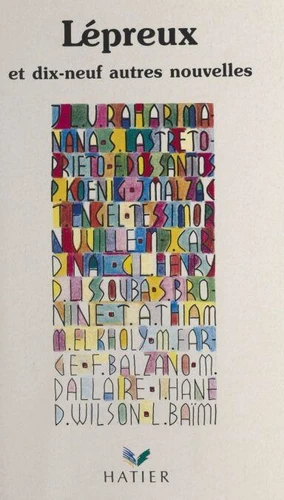 Lépreux
et dix-neuf autres nouvelles
J.-L.V.RAHARIMA-
NANA-S.LASTRETO-
PRIETO-E.DOSSANTOS
P.KOENIG-J.MALZAC
J.TENGEL-T.ESSIMOR
NUVILLE-M.J.CAR-
DINAL-C.L.HENRY
D.USSOUBA-S.BRO-
NINE-T.A.THIAM
M.ELKHOLY-M.FAR-
GE-F.BALZANO-M.
DALLAIRE-I.HANE
D.WILSON-L.BAÏMI
HATIER